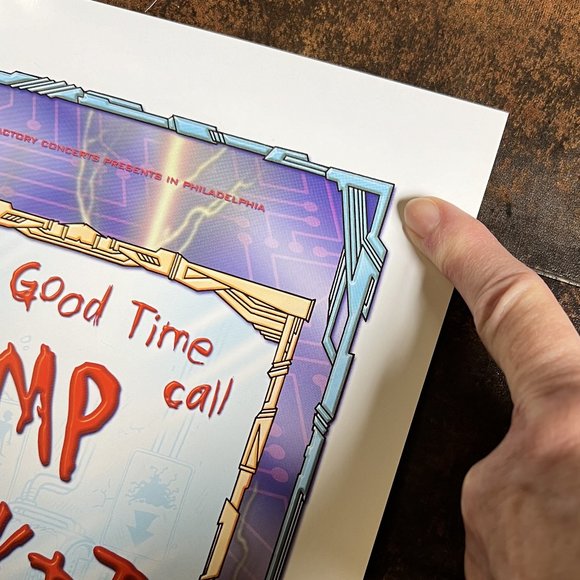 CONCERTS PRESENTS IN PHILADELPHIA
Good Time
call
MP